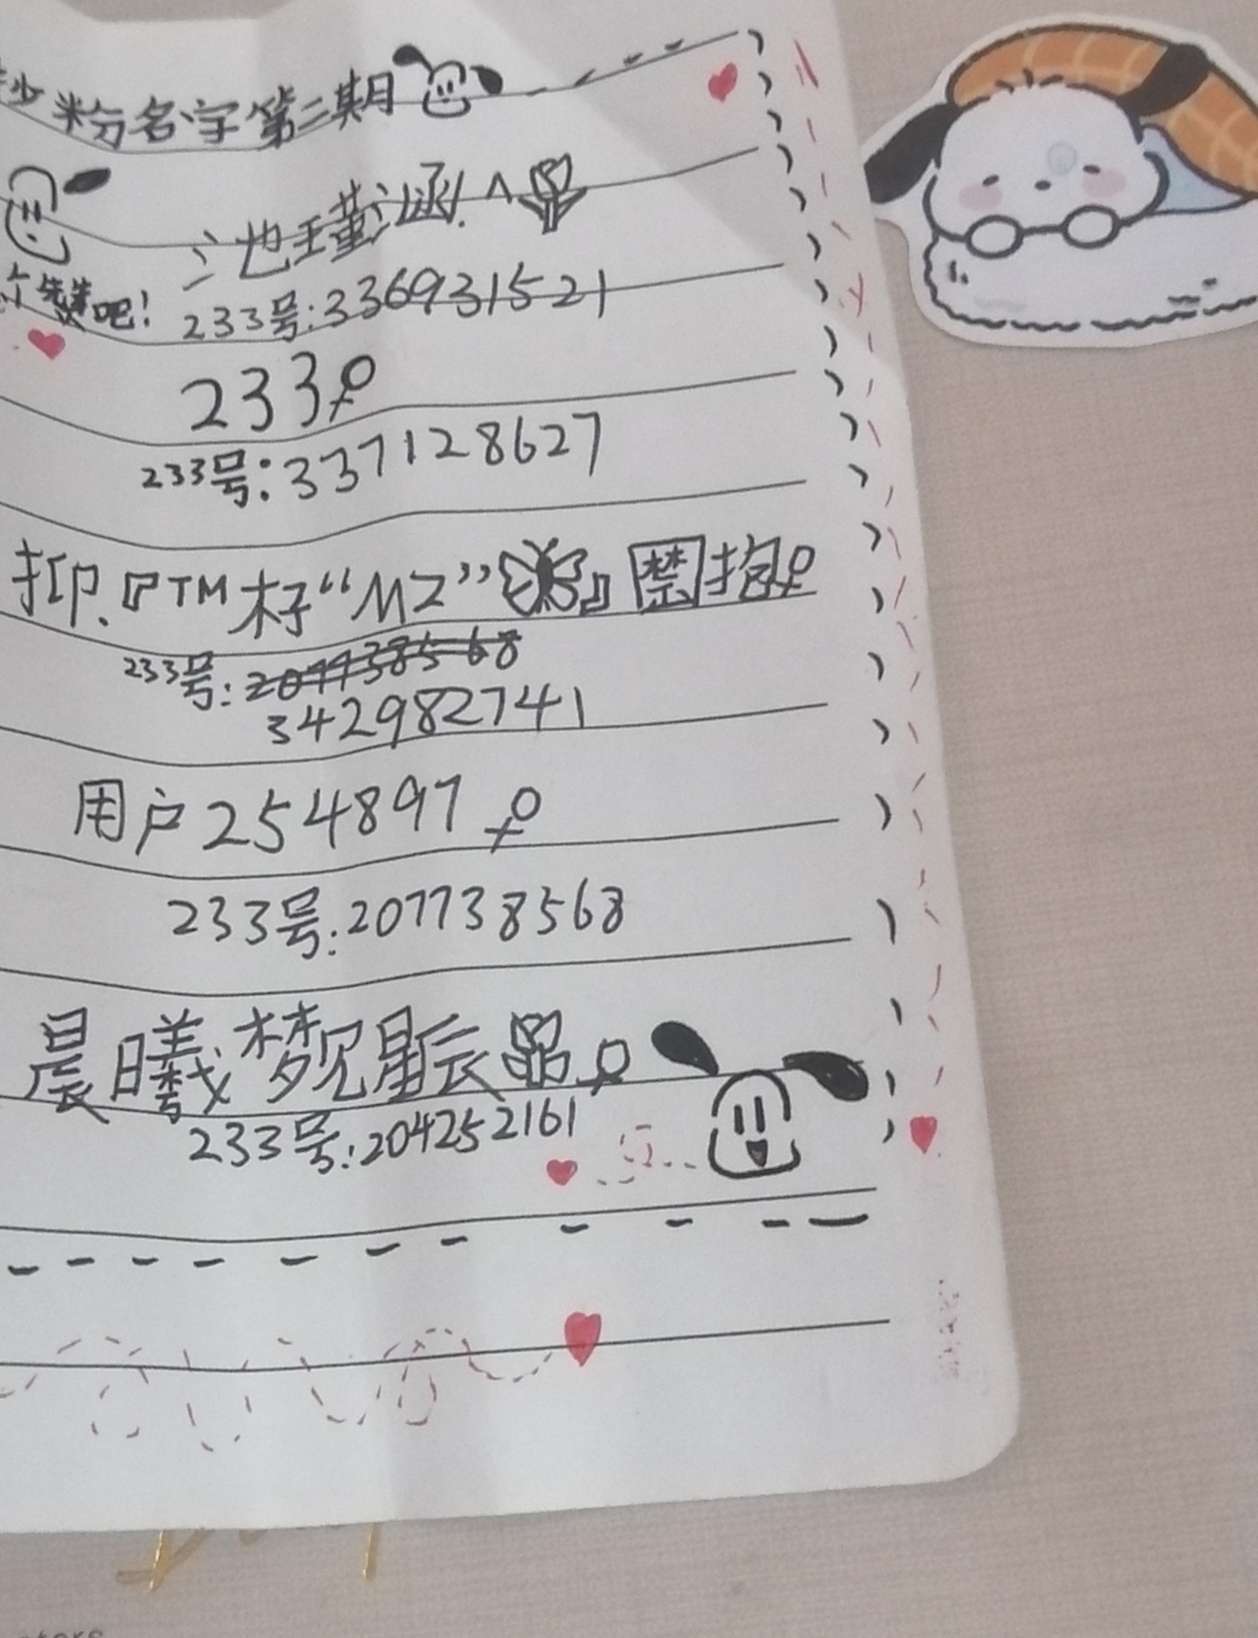 抄粉名字第二期
氵也瑾涵.^
个赞吧！
233号:336931521
233♀
233号:337128627
抑.『TM籽“MZ”』禁抱♀
233号:207738568
342982741
用户254897♀
233号:207738568
晨曦梦见星辰♀
233号:204252161